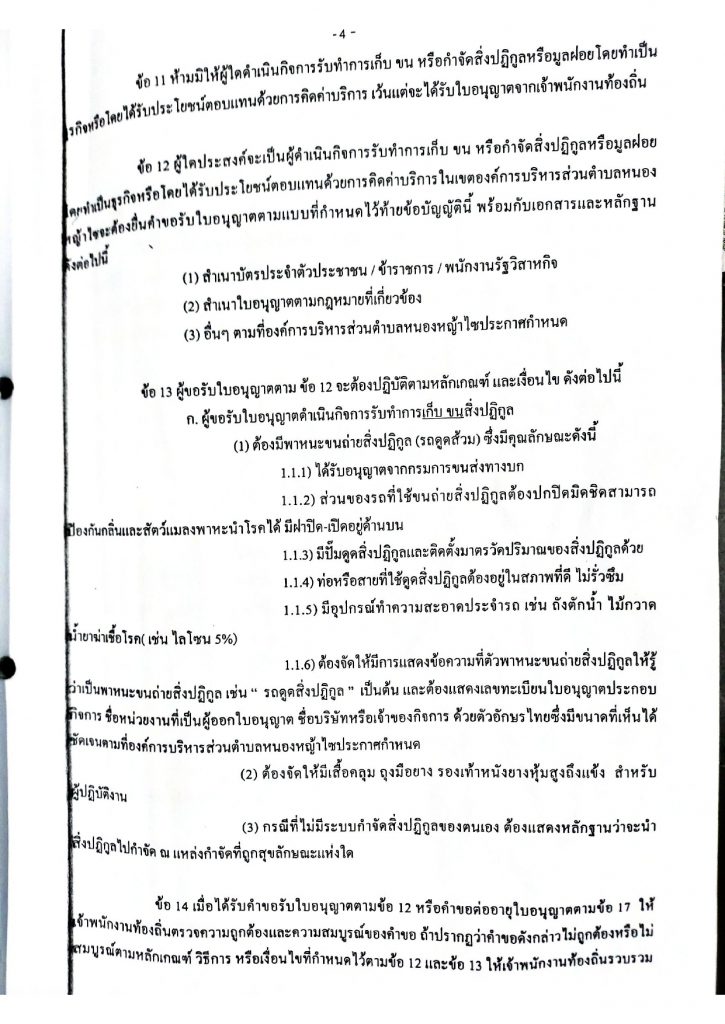 -4-
ข้อ 11 ห้ามมิให้ผู้ใดดำเนินกิจการรับทำการเก็บ ขน หรือกำจัดสิ่งปฏิกูลหรือมูลฝอยโดยทำเป็น
ธุรกิจหรือโดยได้รับประโยชน์ตอบแทนด้วยการคิดค่าบริการ เว้นแต่จะได้รับใบอนุญาตจากเจ้าพนักงานท้องถิ่น
ข้อ 12 ผู้ใดประสงค์จะเป็นผู้ดำเนินกิจการรับทำการเก็บ ขน หรือกำจัดสิ่งปฏิกูลหรือมูลฝอย
โดยทำเป็นธุรกิจหรือโดยได้รับประโยชน์ตอบแทนด้วยการคิดค่าบริการในเขตองค์การบริหารส่วนตำบลหนอง
หญ้าไซจะต้องยื่นคำขอรับใบอนุญาตตามแบบที่กำหนดไว้ท้ายข้อบัญญัตินี้ พร้อมกับเอกสารและหลักฐาน
ดังต่อไปนี้
(1) สำเนาบัตรประจำตัวประชาชน / ข้าราชการ / พนักงานรัฐวิสาหกิจ
(2) สำเนาใบอนุญาตตามกฎหมายที่เกี่ยวข้อง
(3) อื่นๆ ตามที่องค์การบริหารส่วนตำบลหนองหญ้าไซประกาศกำหนด
ข้อ 13 ผู้ขอรับใบอนุญาตตาม ข้อ 12 จะต้องปฏิบัติตามหลักเกณฑ์ และเงื่อนไข ดังต่อไปนี้
ก. ผู้ขอรับใบอนุญาตดำเนินกิจการรับทำการเก็บ ขนสิ่งปฏิกูล
(1) ต้องมีพาหนะขนถ่ายสิ่งปฏิกูล (รถดูดส้วม) ซึ่งมีคุณลักษณะดังนี้
1.1.1) ได้รับอนุญาตจากกรมการขนส่งทางบก
1.1.2) ส่วนของรถที่ใช้ขนถ่ายสิ่งปฏิกูลต้องปกปิดมิดชิดสามารถ
ป้องกันกลิ่นและสัตว์แมลงพาหะนำโรคได้ มีฝาปิด-เปิดอยู่ด้านบน
1.1.3) มีปั๊มดูดสิ่งปฏิกูลและติดตั้งมาตรวัดปริมาณของสิ่งปฏิกูลด้วย
1.1.4) ท่อหรือสายที่ใช้ดูดสิ่งปฏิกูลต้องอยู่ในสภาพที่ดี ไม่รั่วซึม
1.1.5) มีอุปกรณ์ทำความสะอาดประจำรถ เช่น ถังตักน้ำ ไม้กวาด
น้ำยาฆ่าเชื้อโรค( เช่น ไลโซน 5%)
1.1.6) ต้องจัดให้มีการแสดงข้อความที่ตัวพาหนะขนถ่ายสิ่งปฏิกูลให้รู้
ว่าเป็นพาหนะขนถ่ายสิ่งปฏิกูล เช่น “ รถดูดสิ่งปฏิกูล ” เป็นต้น และต้องแสดงเลขทะเบียนใบอนุญาตประกอบ
กิจการ ชื่อหน่วยงานที่เป็นผู้ออกใบอนุญาต ชื่อบริษัทหรือเจ้าของกิจการ ด้วยตัวอักษรไทยซึ่งมีขนาดที่เห็นได้
ชัดเจนตามที่องค์การบริหารส่วนตำบลหนองหญ้าไซประกาศกำหนด
(2) ต้องจัดให้มีเสื้อคลุม ถุงมือยาง รองเท้าหนังยางหุ้มสูงถึงแข้ง สำหรับ
ผู้ปฏิบัติงาน
(3) กรณีที่ไม่มีระบบกำจัดสิ่งปฏิกูลของตนเอง ต้องแสดงหลักฐานว่าจะนำ
สิ่งปฏิกูลไปกำจัด ณ แหล่งกำจัดที่ถูกสุขลักษณะแห่งใด
ข้อ 14 เมื่อได้รับคำขอรับใบอนุญาตตามข้อ 12 หรือคำขอต่ออายุใบอนุญาตตามข้อ 17 ให้
เจ้าพนักงานท้องถิ่นตรวจความถูกต้องและความสมบูรณ์ของคำขอ ถ้าปรากฏว่าคำขอดังกล่าวไม่ถูกต้องหรือไม่
สมบูรณ์ตามหลักเกณฑ์ วิธีการ หรือเงื่อนไขที่กำหนดไว้ตามข้อ 12 และข้อ 13 ให้เจ้าพนักงานท้องถิ่นรวบรวม